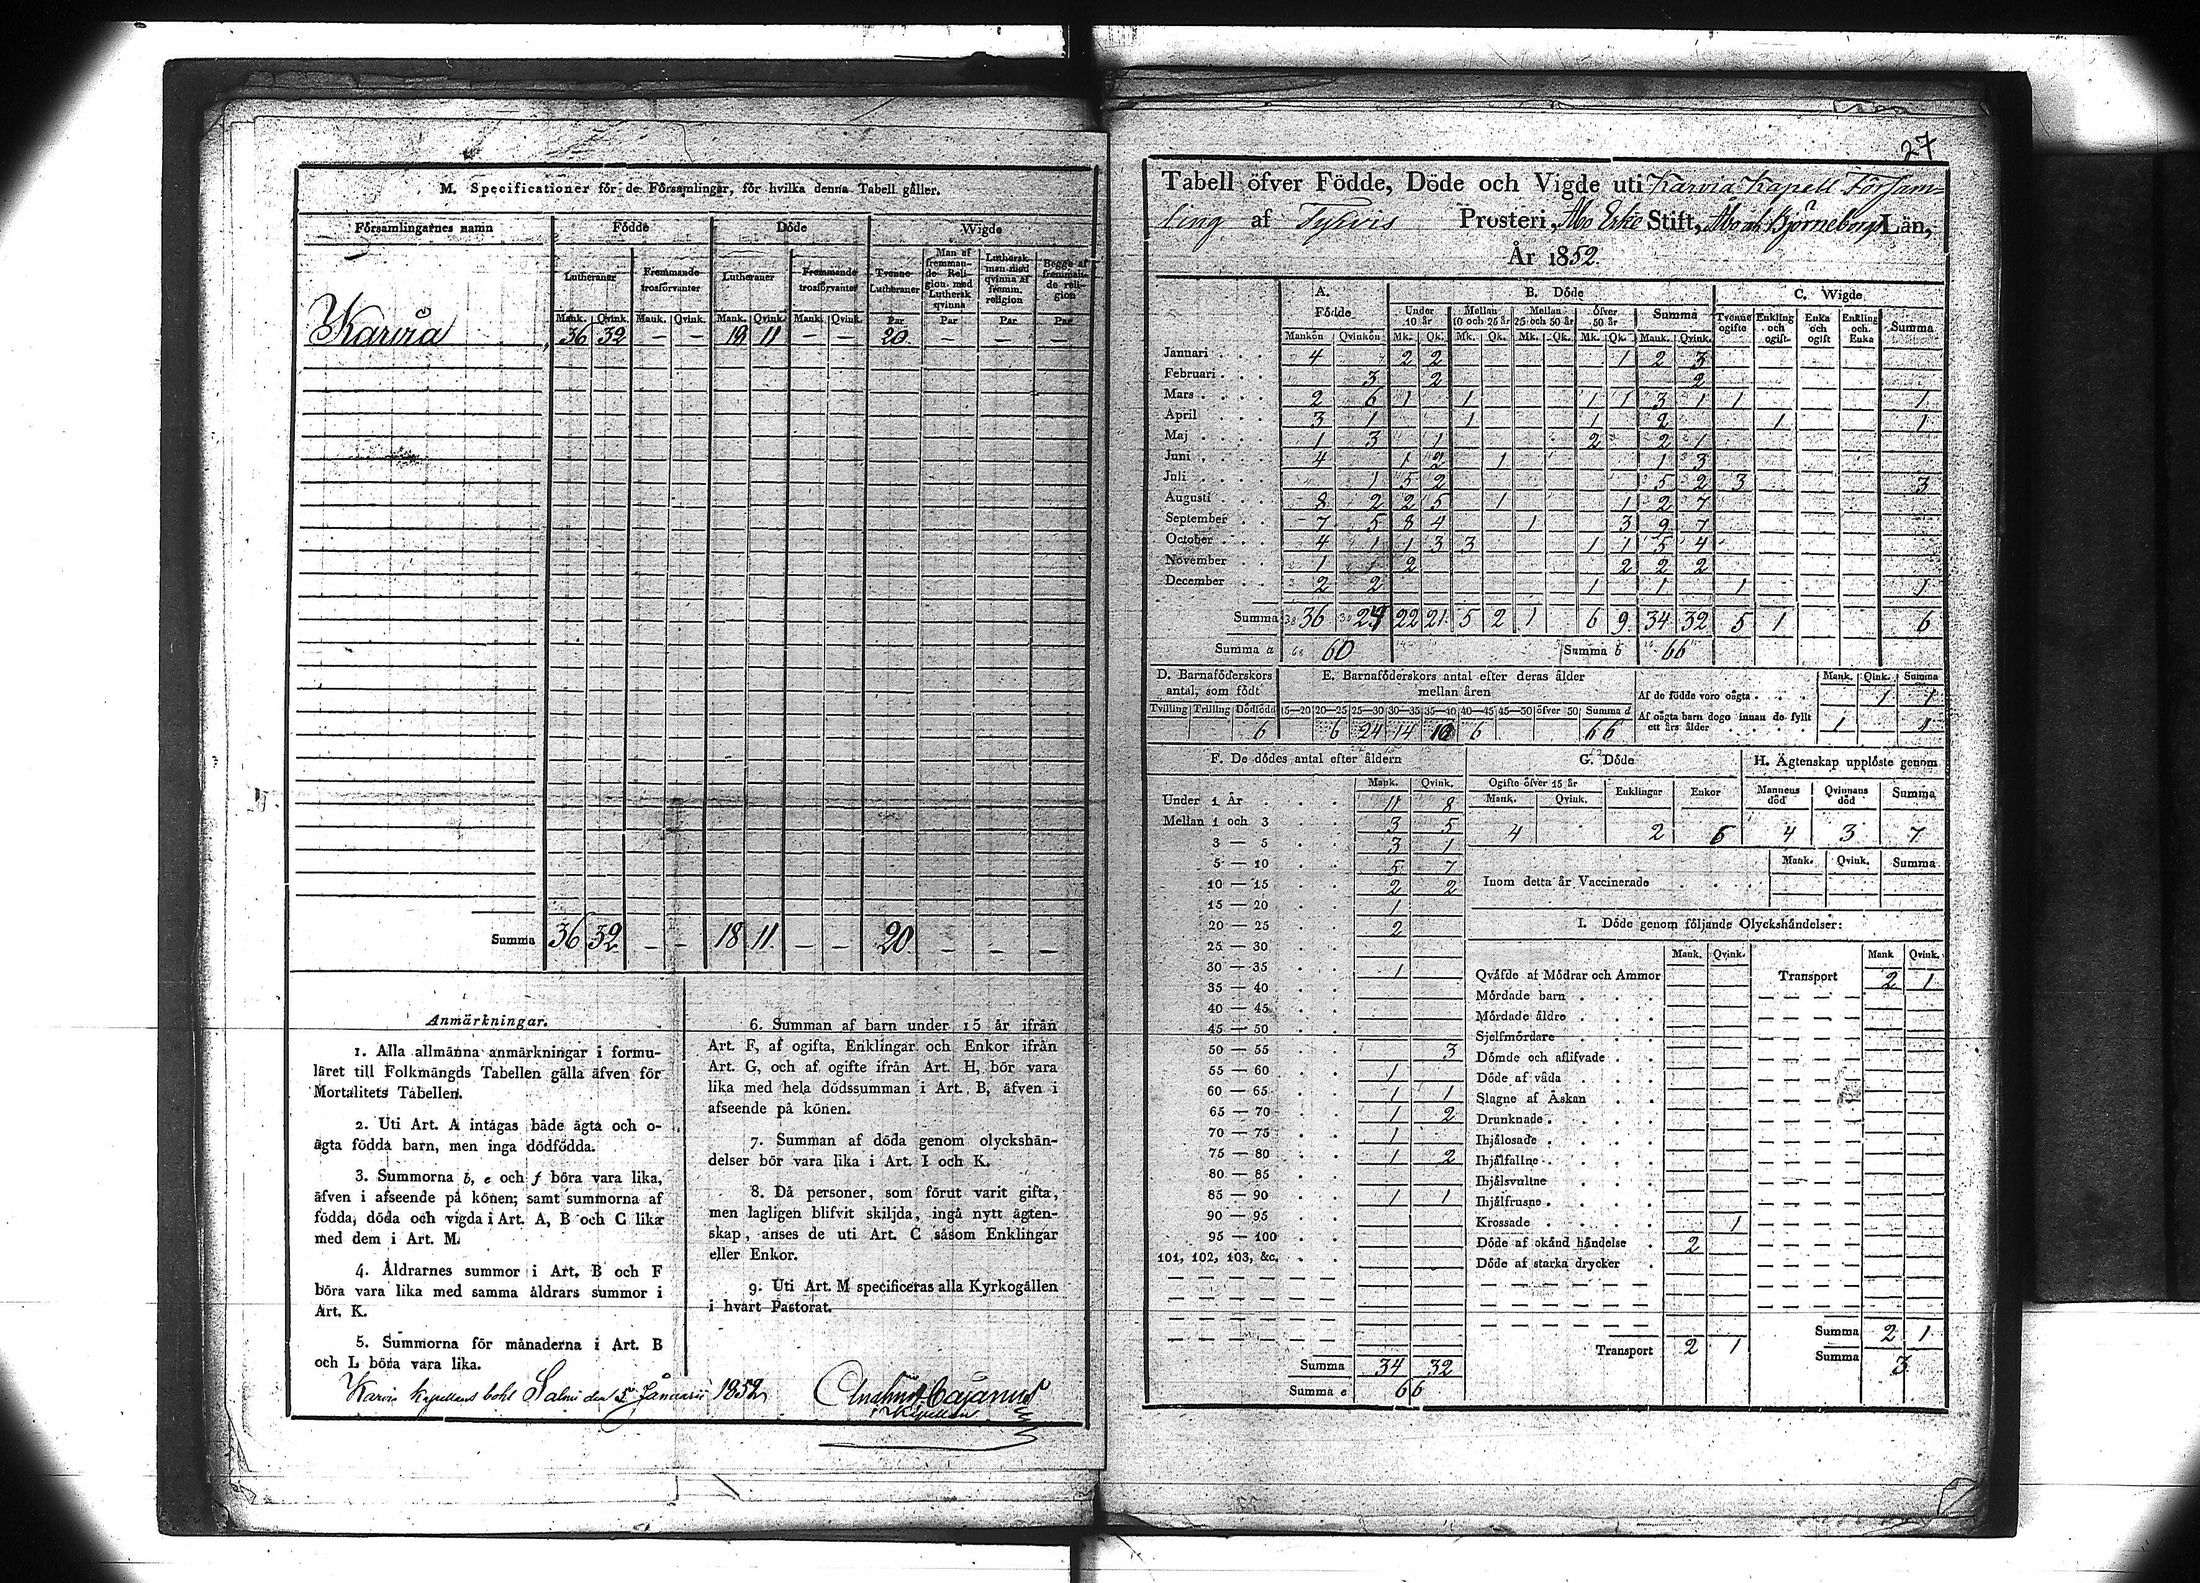 M. Specificationer för de Församlingar, för hvilka denna Tabell gäller.
Församlingarnes namn Födde Döde Wigde
Lutheraner Fremmande trosförvanter Lutheraner Fremmande trosförvanter Tvenne Lutheraner Man af fremmande Religion med Luthersk qvinna Luthersk man med qvinna af fremm. religion Begge af fremmande religion
Mank. Qvink. Mank. Qvink. Mank. Qvink. Mank. Qvink. Par Par Par Par
Karvia 36 32 — — 19 11 — — 20. — — —
Summa 36 32 — — 18 11 — — 20. — — —
Anmärkningar.
1. Alla allmänna anmärkningar i formu-
läret till Folkmängds Tabellen gälla äfven för
Mortalitets Tabellen.
2. Uti Art. A intagas både ägta och o-
ägta födda barn, men inga dödfödda.
3. Summorna b, e och f böra vara lika,
äfven i afseende på könen; samt summorna af
födda, döda och vigda i Art. A, B och C lika
med dem i Art. M.
4. Åldrarnes summor i Art. B och F
böra vara lika med samma åldrars summor i
Art. K.
5. Summorna för månaderna i Art. B
och L böra vara lika.
6. Summan af barn under 15 år ifrån
Art. F, af ogifta, Enklingar och Enkor ifrån
Art. G, och af ogifte ifrån Art. H, bör vara
lika med hela dödssumman i Art. B, äfven i
afseende på könen.
7. Summan af döda genom olyckshän-
delser bör vara lika i Art. I och K.
8. Då personer, som förut varit gifta,
men lagligen blifvit skiljda, ingå nytt ägten-
skap, anses de uti Art. C såsom Enklingar
eller Enkor.
9. Uti Art. M specificeras alla Kyrkogällen
i hvart Pastorat.
Karvia Kapellans bohl Salmi den 5 Januarii 1852
Cajanus
Kapellan
27
Tabell öfver Födde, Döde och Vigde uti Karvia Kapell Försam-
ling af Tyrvis Prosteri, Åbo Erke Stift, Åbo och Björneborgs Län,
År 1852.
A. Födde B. Döde C. Wigde
Under 10 år Mellan 10 och 25 år Mellan 25 och 50 år öfver 50 år Summa Tvenne ogifte Enkling och ogift Enka och ogift Enkling och Enka Summa
Mankön Qvinkön Mk. Qk. Mk. Qk. Mk. Qk. Mk. Qk. Mank. Qvink.
Januari 4 2 2 1 2 3
Februari 3 2 2
Mars 2 6 1 1 1 1 3 1 1 1
April 3 1 1 1 2 1 1
Maj 1 3 1 2 2 1
Juni 4 1 2 1 1 3
Juli 1 5 2 5 2 3 3
Augusti 8 2 2 5 1 1 2 7
September 7 5 8 4 1 3 9 7
October 4 1 1 3 3 1 1 5 4
November 1 1 2 2 2 2
December 2 2 1 1 1 1
Summa 36 24 22 21 5 2 1 6 9 34 32 5 1 6
Summa a 60 Summa b 66
D. Barnaföderskors antal, som födt
Tvilling Trilling Dödfödde
6
E. Barnaföderskors antal efter deras ålder mellan åren
15—20 20—25 25—30 30—35 35—40 40—45 45—50 öfver 50 Summa d
6 24 14 10 6 66
Mank. Qink. Summa
Af de födde voro oägta 1 1
Af oägta barn dogo innan de fyllt ett års ålder 1 1
F. De dödes antal efter åldern
Mank. Qvink.
Under 1 År 11 8
Mellan 1 och 3 3 5
3 — 5 3 1
5 — 10 5 7
10 — 15 2 2
15 — 20 1
20 — 25 2
25 — 30
30 — 35 1
35 — 40
40 — 45
45 — 50
50 — 55 3
55 — 60 1
60 — 65 1 1
65 — 70 1 2
70 — 75 1
75 — 80 1 2
80 — 85
85 — 90 1 1
90 — 95
95 — 100
101, 102, 103, &c.
Summa 34 32
Summa e 66
G. Döde
Ogifte öfver 15 år Enklingar Enkor
Mank. Qvink.
4 2 6
H. Ägtenskap upplöste genom
Mannens död Qvinnans död Summa
4 3 7
Mank. Qvink. Summa
Inom detta år Vaccinerade
I. Döde genom följande Olyckshändelser:
Mank. Qvink. Mank Qvink.
Qväfde af Mödrar och Ammor Transport 2 1
Mördade barn
Mördade äldre
Sjelfmördare
Dömde och aflifvade
Döde af våda
Slagne af Åskan
Drunknade
Ihjälosade
Ihjälfallne
Ihjälsvultne
Ihjälfrusne
Krossade 1
Döde af okänd händelse 2
Döde af starka drycker
Transport 2 1
Summa 2 1
Summa 3